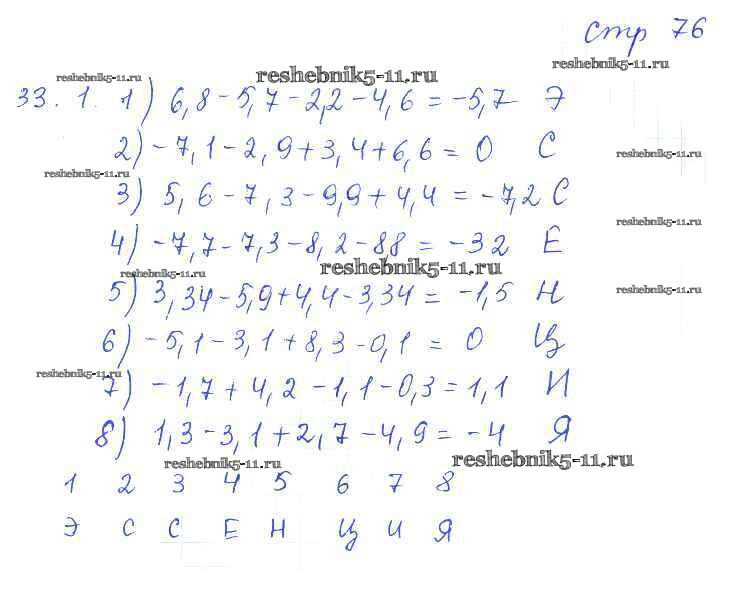 стр 76
reshebnik5-11.ru
reshebnik5-11.ru
reshebnik5-11.ru
33.1. 1) 6,8-5,7-2,2-4,6=-5,7 Э
2) -7,1-2,9+3,4+6,6=0 С
reshebnik5-11.ru
reshebnik5-11.ru
3) 5,6-7,3-9,9+4,4=-7,2 С
reshebnik5-11.ru
4) -7,7-7,3-8,2-88=-32 Е
reshebnik5-11.ru
reshebnik5-11.ru
5) 3,34-5,9+4,4-3,34=-1,5 Н
reshebnik5-11.ru
6) -5,1-3,1+8,3-0,1=0 Ц
reshebnik5-11.ru
7) -1,7+4,2-1,1-0,3=1,1 И
8) 1,3-3,1+2,7-4,9=-4 Я
reshebnik5-11.ru
reshebnik5-11.ru
1 2 3 4 5 6 7 8
Э С С Е Н Ц И Я